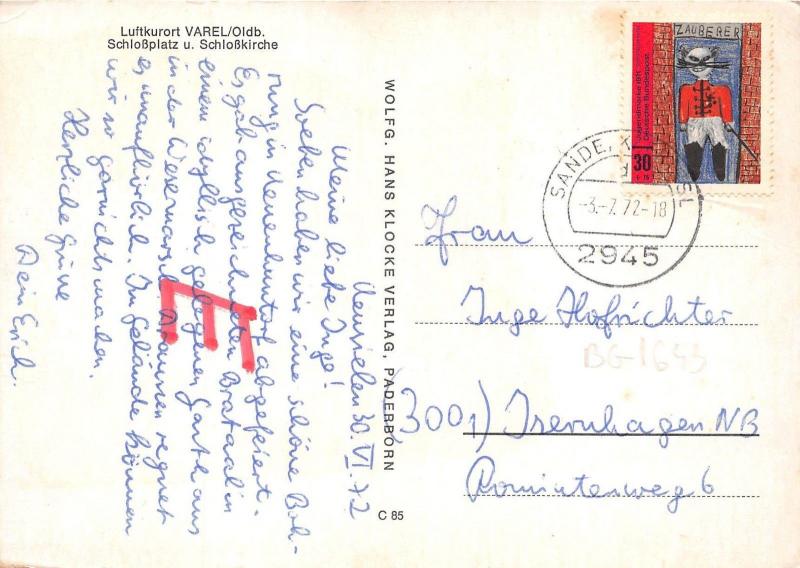 Luftkurort VAREL/Oldb.
Schloßplatz u. Schloßkirche
30. VI. 72
Meine liebe Inge!
Soeben haben wir eine schöne Boh-
rung in Neuenhuntorf abgefeiert.
Es gab ausgezeichneten Brataal in
einem idyllisch gelegenen Gasthaus
in der Wesermarsch. Draussen regnet
es unaufhörlich. Im Gelände können
wir so garnichts machen.
Herzliche Grüsse
Dein Erich.
WOLFG. HANS KLOCKE VERLAG, PADERBORN
C 85
ZAUBERER
Jugendmarke 1971
Deutsche Bundespost
30
+ 15
SANDE, K
-3.-7.72-18
2945
Frau
Inge Hofrichter
(3001) Isernhagen NB
Rominterweg 6
BG-1643
E